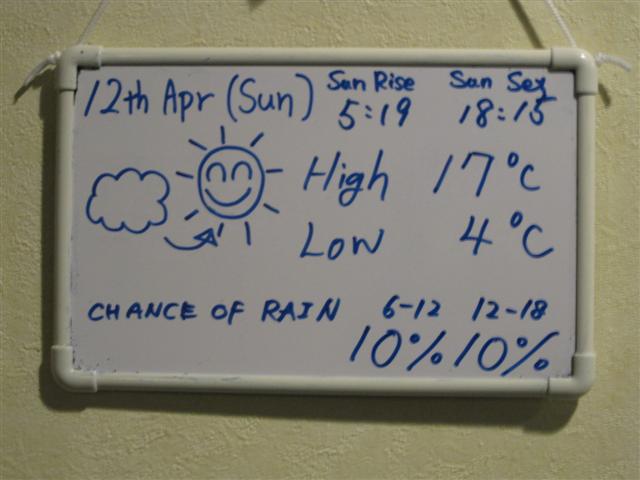 12th Apr (Sun) Sun Rise Sun Set
5:19 18:15
High 17°C
Low 4°C
CHANCE OF RAIN 6-12 12-18
10% 10%